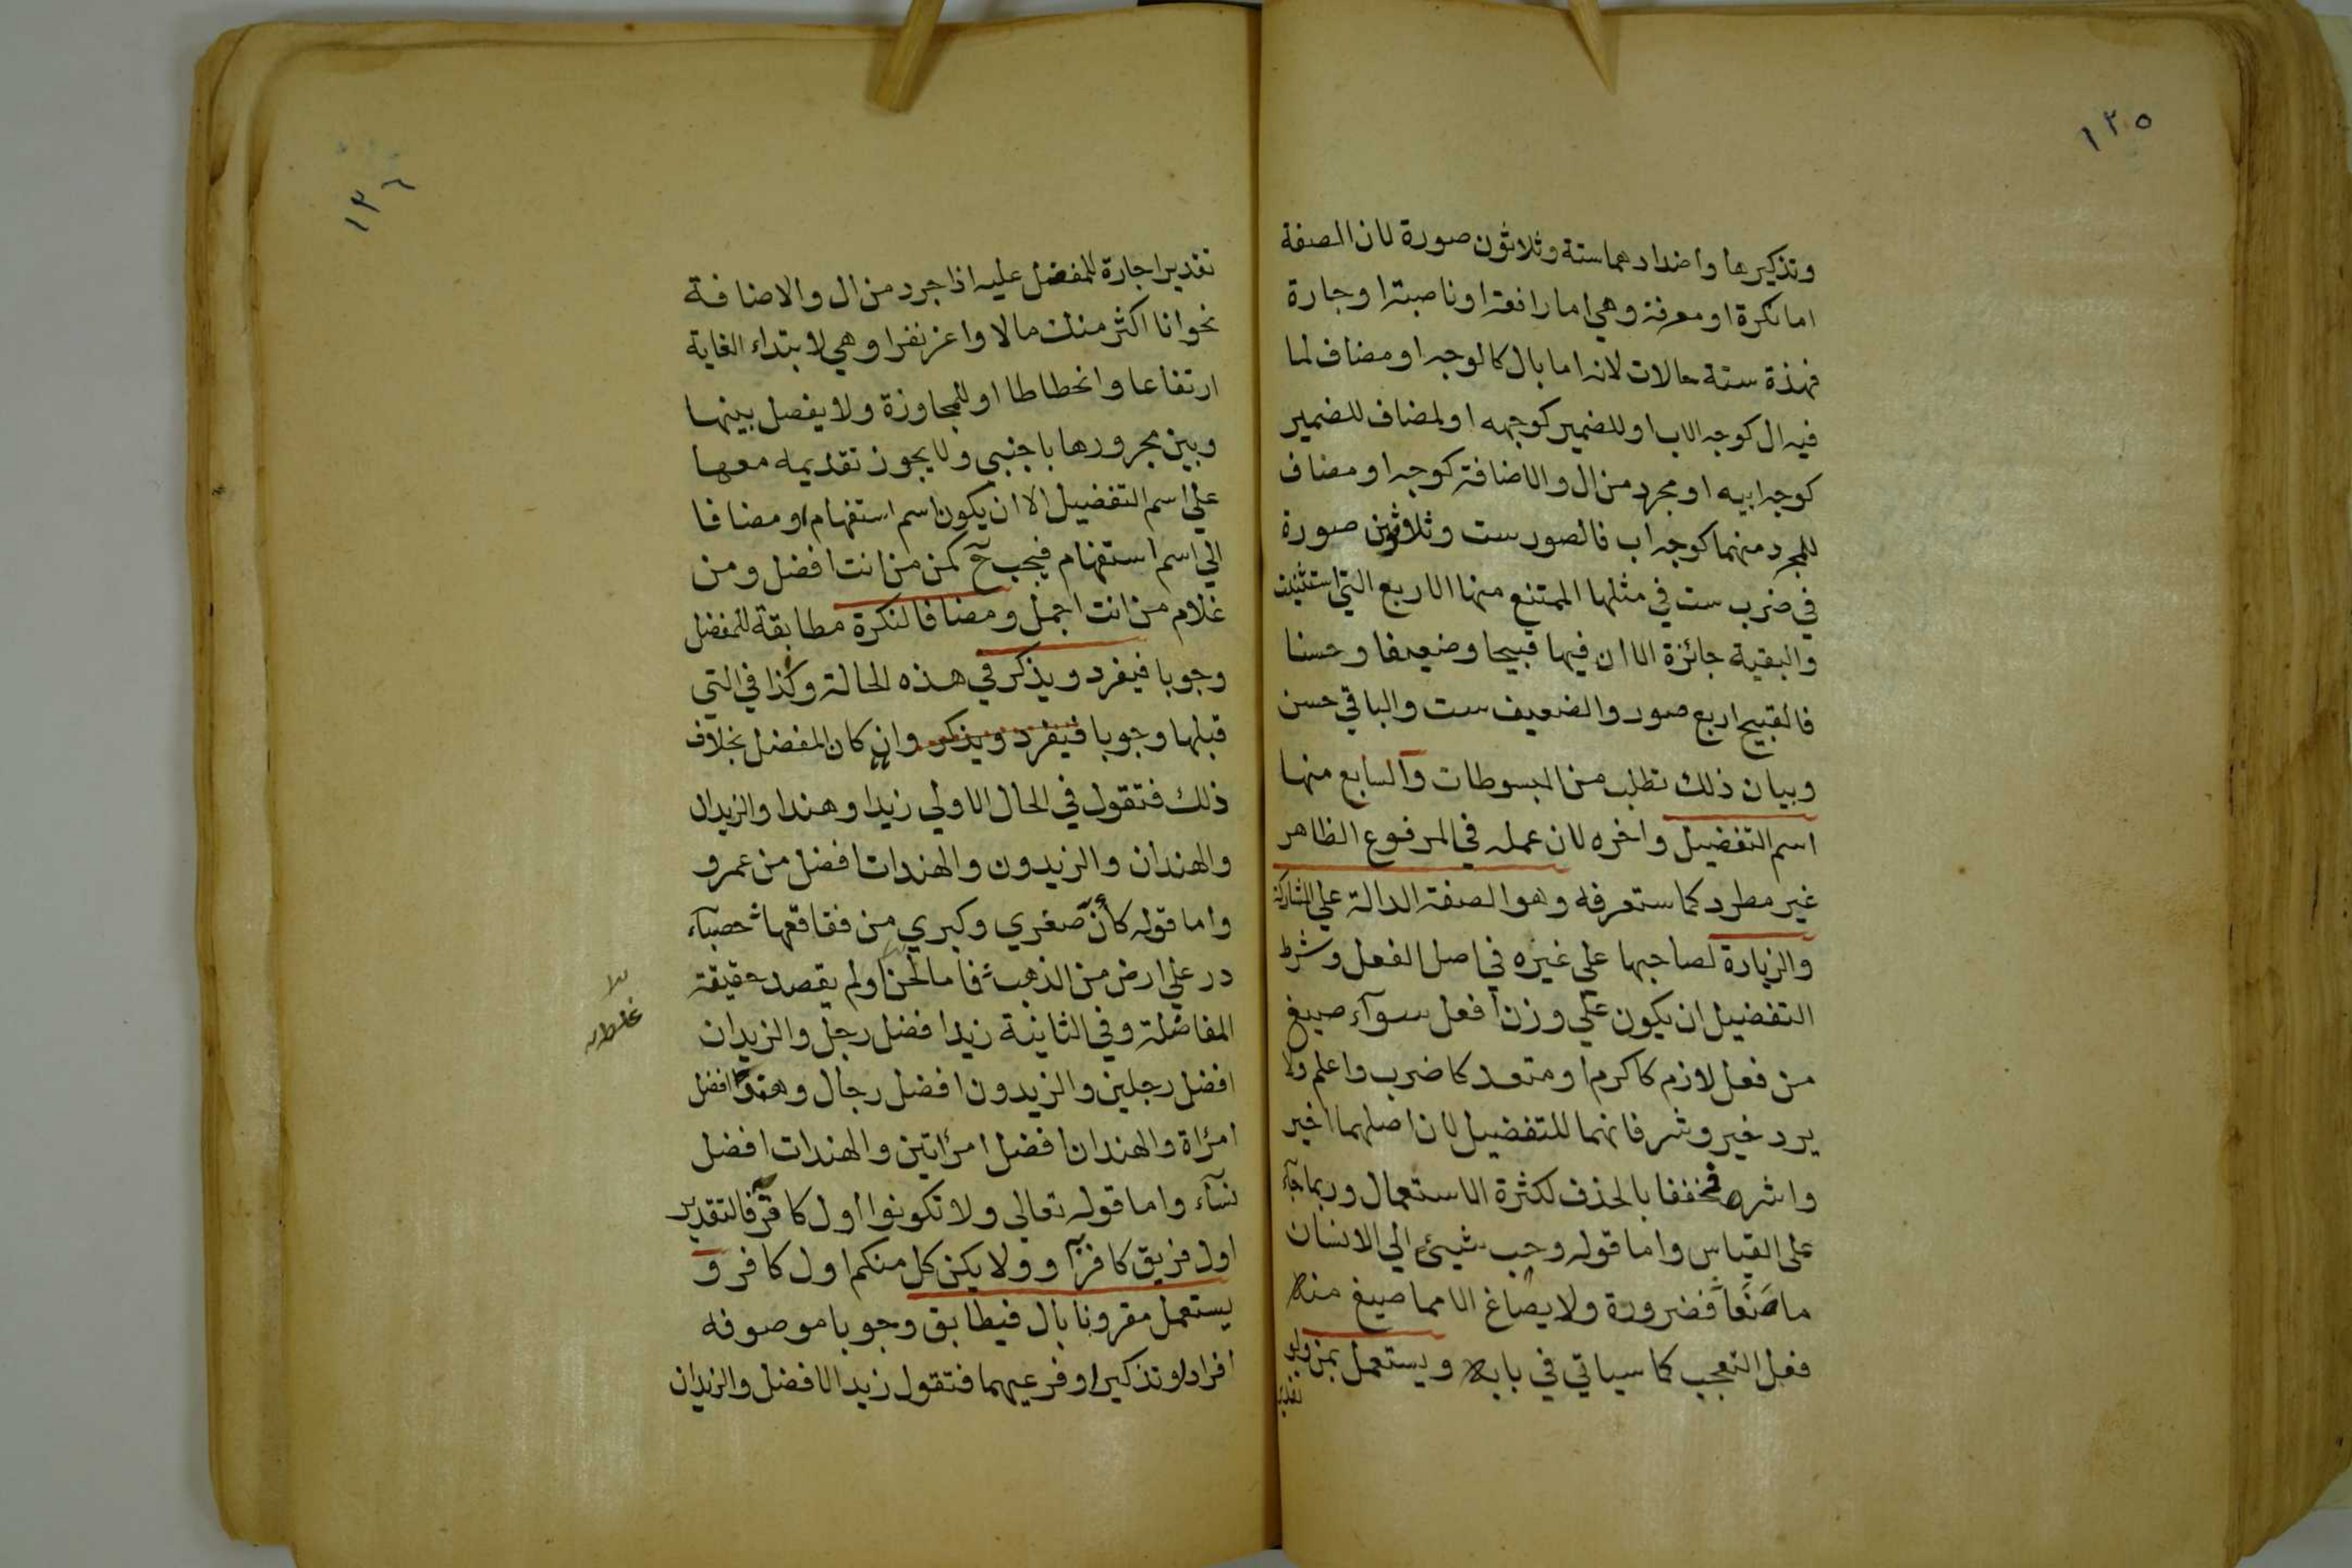 ١٣٥
وتذكيرها واضدادهما ستة وثلاثون صورة لان الصفة
اما نكرة او معرفة وهي اما رافعة او ناصبة او جارة
فهذة ستة حالات لانه اما بال كالوجه او مضاف لما
فيه ال كوجه الاب او للضمير كوجهه او لمضاف للضمير
كوجه ابيه او مجرد من ال والاضافة كوجه او مضاف
للمجرد منهما كوجه اب فالصور ست وثلاثين صورة
في ضرب ست في مثلها الممتنع منها الاربع التي استثنيت
والبقية جائزة الا ان فيها قبيحا وضعيفا وحسنا
فالقبيح اربع صور والضعيف ست والباقي حسن
وبيان ذلك تطلب من المبسوطات والسابع منها
اسم التفضيل واخره لان عمله في المرفوع الظاهر
غير مطرد كما ستعرفه وهو الصفة الدالة علي المشاركة
والزيادة لصاحبها علي غيره في اصل الفعل وشرط
التفضيل ان يكون علي وزن افعل سوآء صيغ
من فعل لازم كاكرم او متعد كاضرب واعلم ولا
يرد خير وشر فانهما للتفضيل لان اصلهما اخير
واشر فخففا بالحذف لكثرة الاستعمال وربما جآء
على القياس واما قوله وحب شيئ الي الانسان
ما مَنَعَا فضرورة ولا يصاغ الا مما صيغ منه
فعل التعجب كما سياتي في بابه ويستعمل بمن ولو
تقديرا
١٣٦
تقديرا جارة للمفضل عليه اذا جرد من ال والاضافة
نحو انا اكثر منك مالا واعز نفرا وهي لابتداء الغاية
ارتفاعا وانحطاطا او للمجاوزة ولا يفصل بينها
وبين مجرورها باجنبي ولا يجوز تقديمه معها
علي اسم التفضيل الا ان يكون اسم استفهام او مضافا
الي اسم استفهام فيجب ح كمن من انت افضل ومن
غلام من انت اجمل ومضافا لنكرة مطابقة للمفضل
وجوبا فيفرد ويذكر في هذه الحالة وكذا في التي
قبلها وجوبا فيفرد ويذكر وان كان المفضل بخلاف
ذلك فتقول في الحال الاولي زيدا وهندا والزيدان
والهندان والزيدون والهندات افضل من عمرو
واما قوله كأنّ صغري وكبري من فقاقعها حصبآء
در علي ارض من الذهب فاما لحن او لم يقصد حقيقة
المفاضلة وفي الثانية زيدا فضل رجل والزيدان
افضل رجلين والزيدون افضل رجال وهند افضل
امرأة والهندان افضل امرأتين والهندات افضل
نسآء واما قوله تعالي ولا تكونوا اول كافر فالتقدير
اول فريق كافر او ولا يكن كل منكم اول كافر و
يستعمل مقرونا بال فيطابق وجوبا موصوفه
افرادا وتذكيرا وفرعيهما فتقول زيد الافضل والزيدان